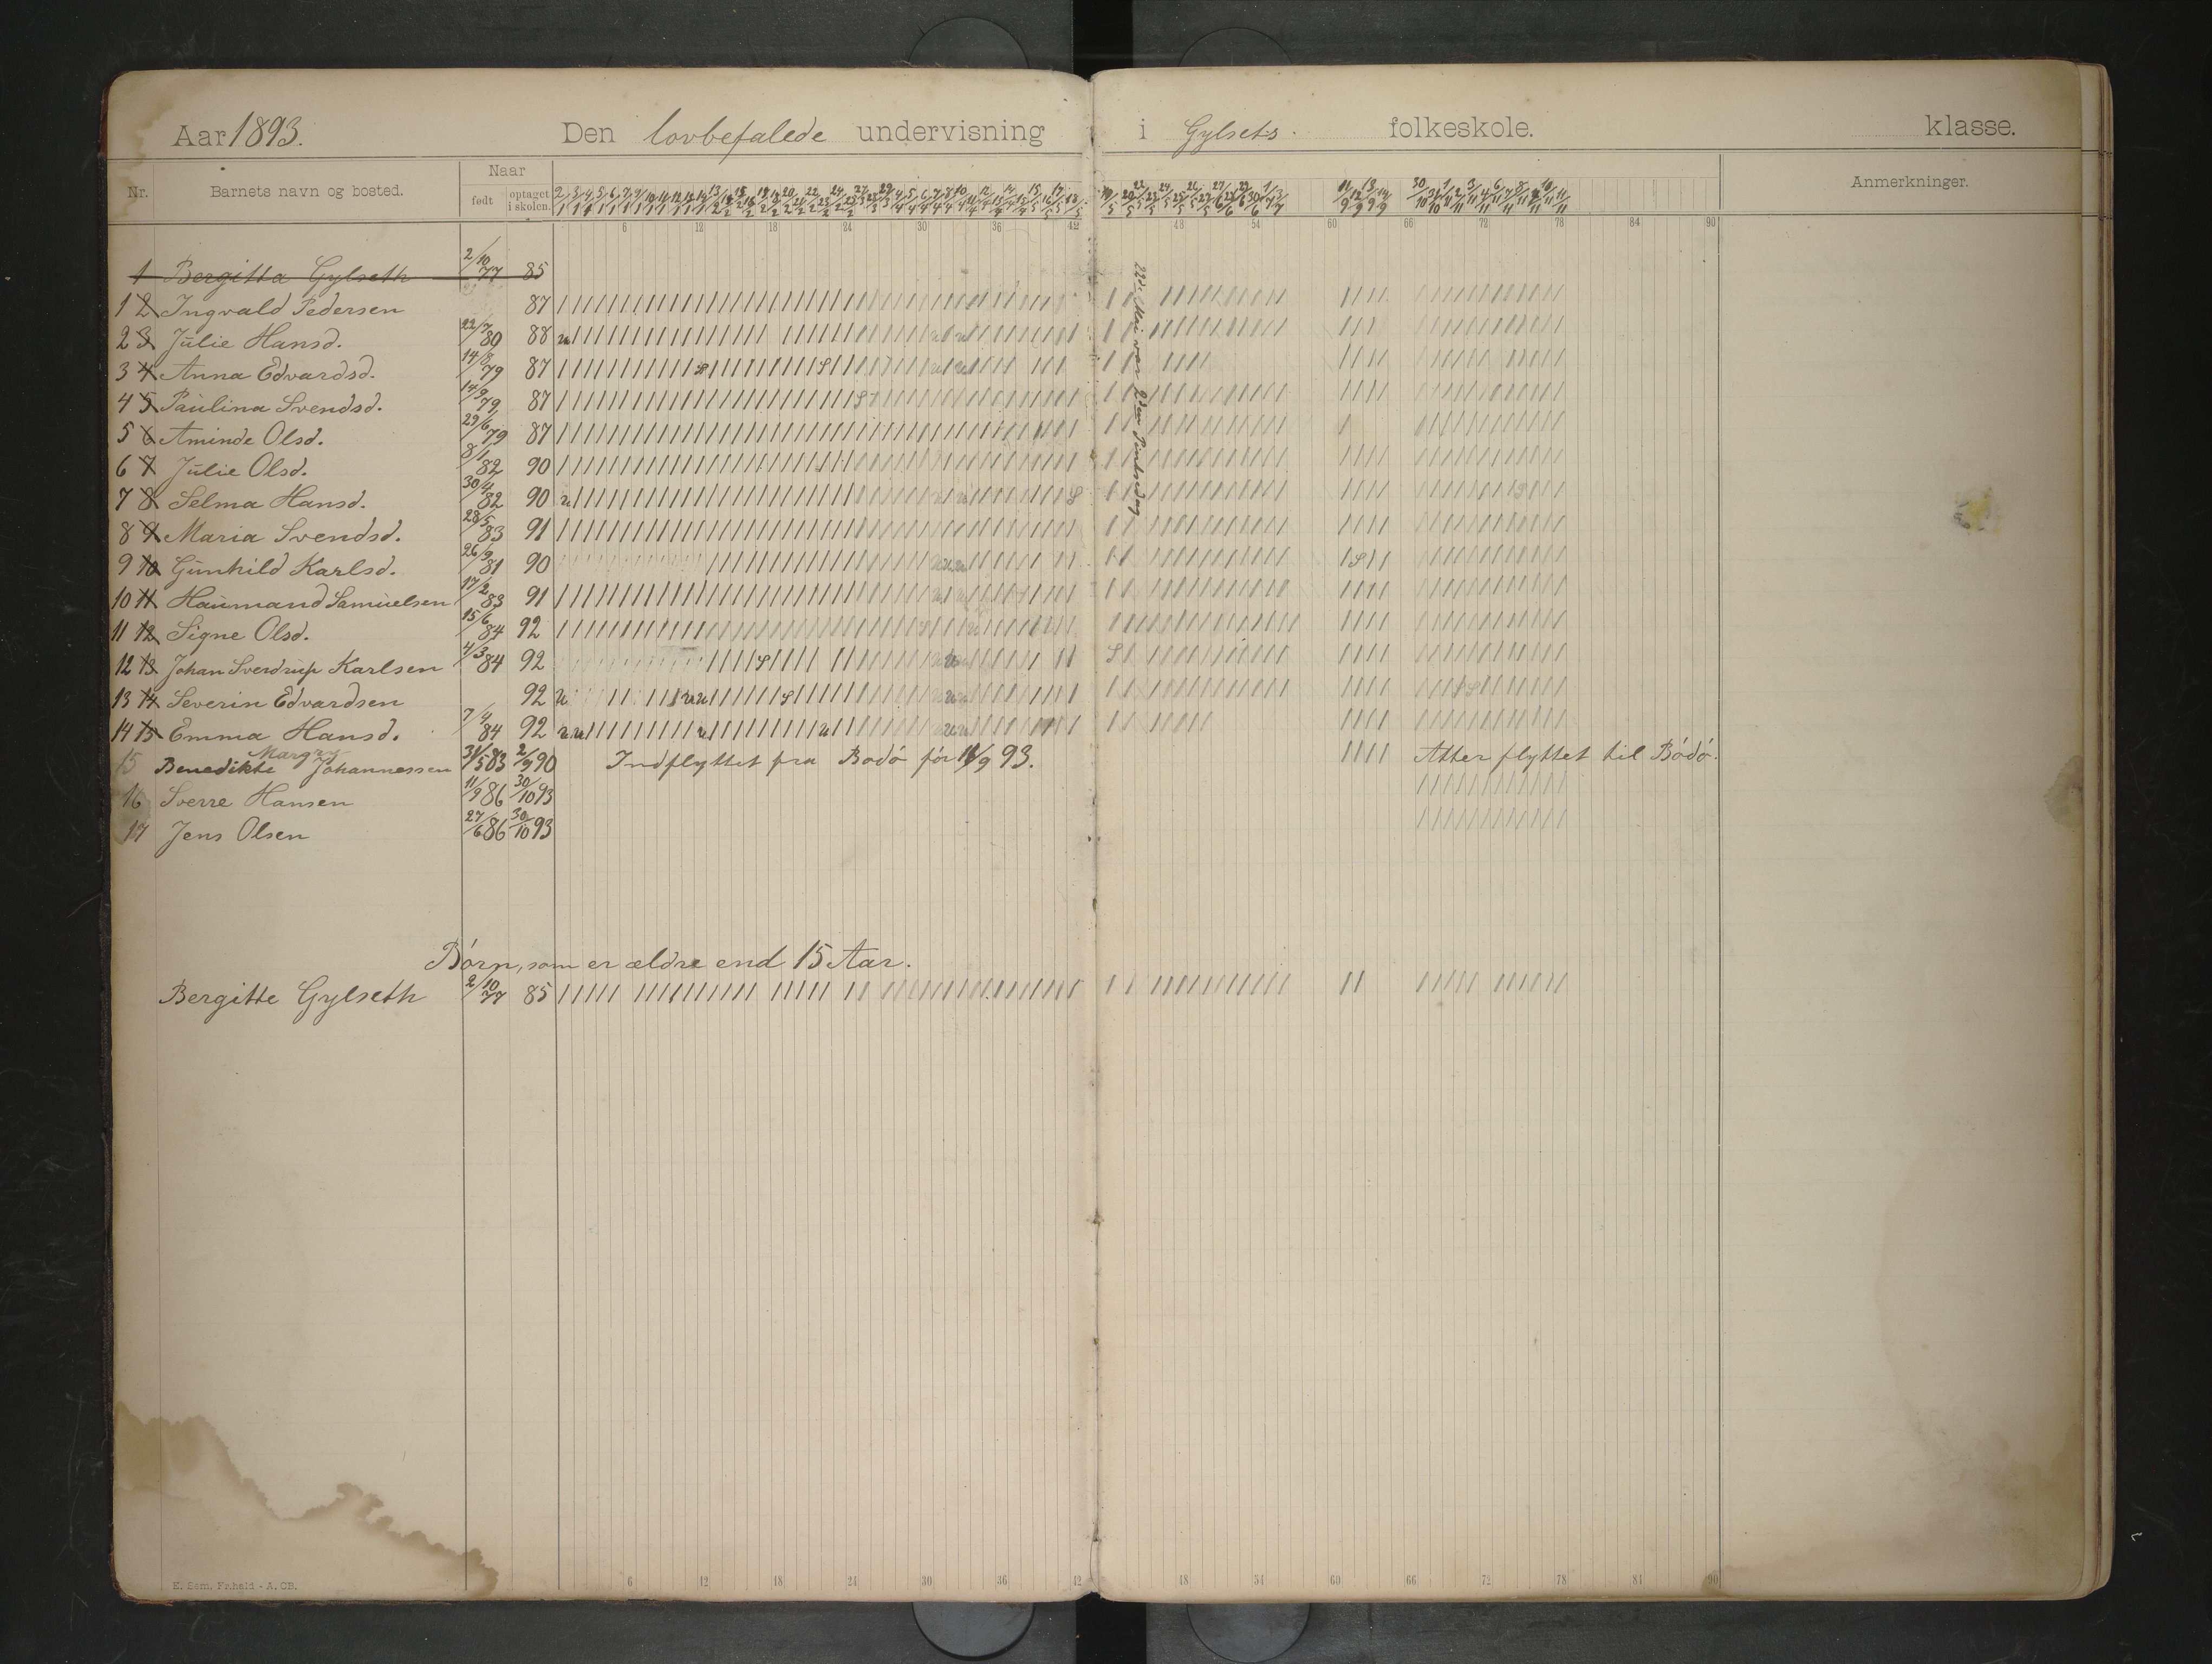 Aar 1893. Den lovbefalede undervisning i Gylsets folkeskole. klasse.
Nr. Barnets navn og bosted. Naar Anmerkninger.
født optaget i skolen.
6 12 18 24 30 36 42 48 54 60 66 72 78 84 90
1 Bergitta Gylseth 2/10 77 85
1 2 Ingvald Pedersen 87
2 3 Julie Hansd. 22/7 80 88
3 4 Anna Edvardsd. 14/8 79 87
4 5 Paulina Svendsd. 14/9 79 87
5 6 Aminde Olsd. 29/6 79 87
6 7 Julie Olsd. 8/1 82 90
7 8 Selma Hansd. 30/4 82 90
8 9 Maria Svendsd. 28/5 83 91
9 10 Gunhild Karlsd. 26/9 81 90
10 11 Haumand Samuelsen 17/2 83 91
11 12 Signe Olsd. 15/6 84 92
12 13 Johan Sverdrup Karlsen 4/3 84 92
13 14 Severin Edvardsen 92
14 15 Emma Hansd. 7/4 84 92
15 Benedikte Margry Johannessen 31/5 83 2/9 90 Indflyttet fra Bodó før 11/9 93. Atter flyttet til Bódó.
16 Sverre Hansen 11/9 86 30/10 93
17 Jens Olsen 27/6 86 30/10 93
22de Mai var 2den Pintsedag
Børn, som er ældre end 15 Aar.
Bergitte Gylseth 2/10 77 85
6 12 18 24 30 36 42 48 54 60 66 72 78 84 90
E. Sem. Fr.hald - A. CB.